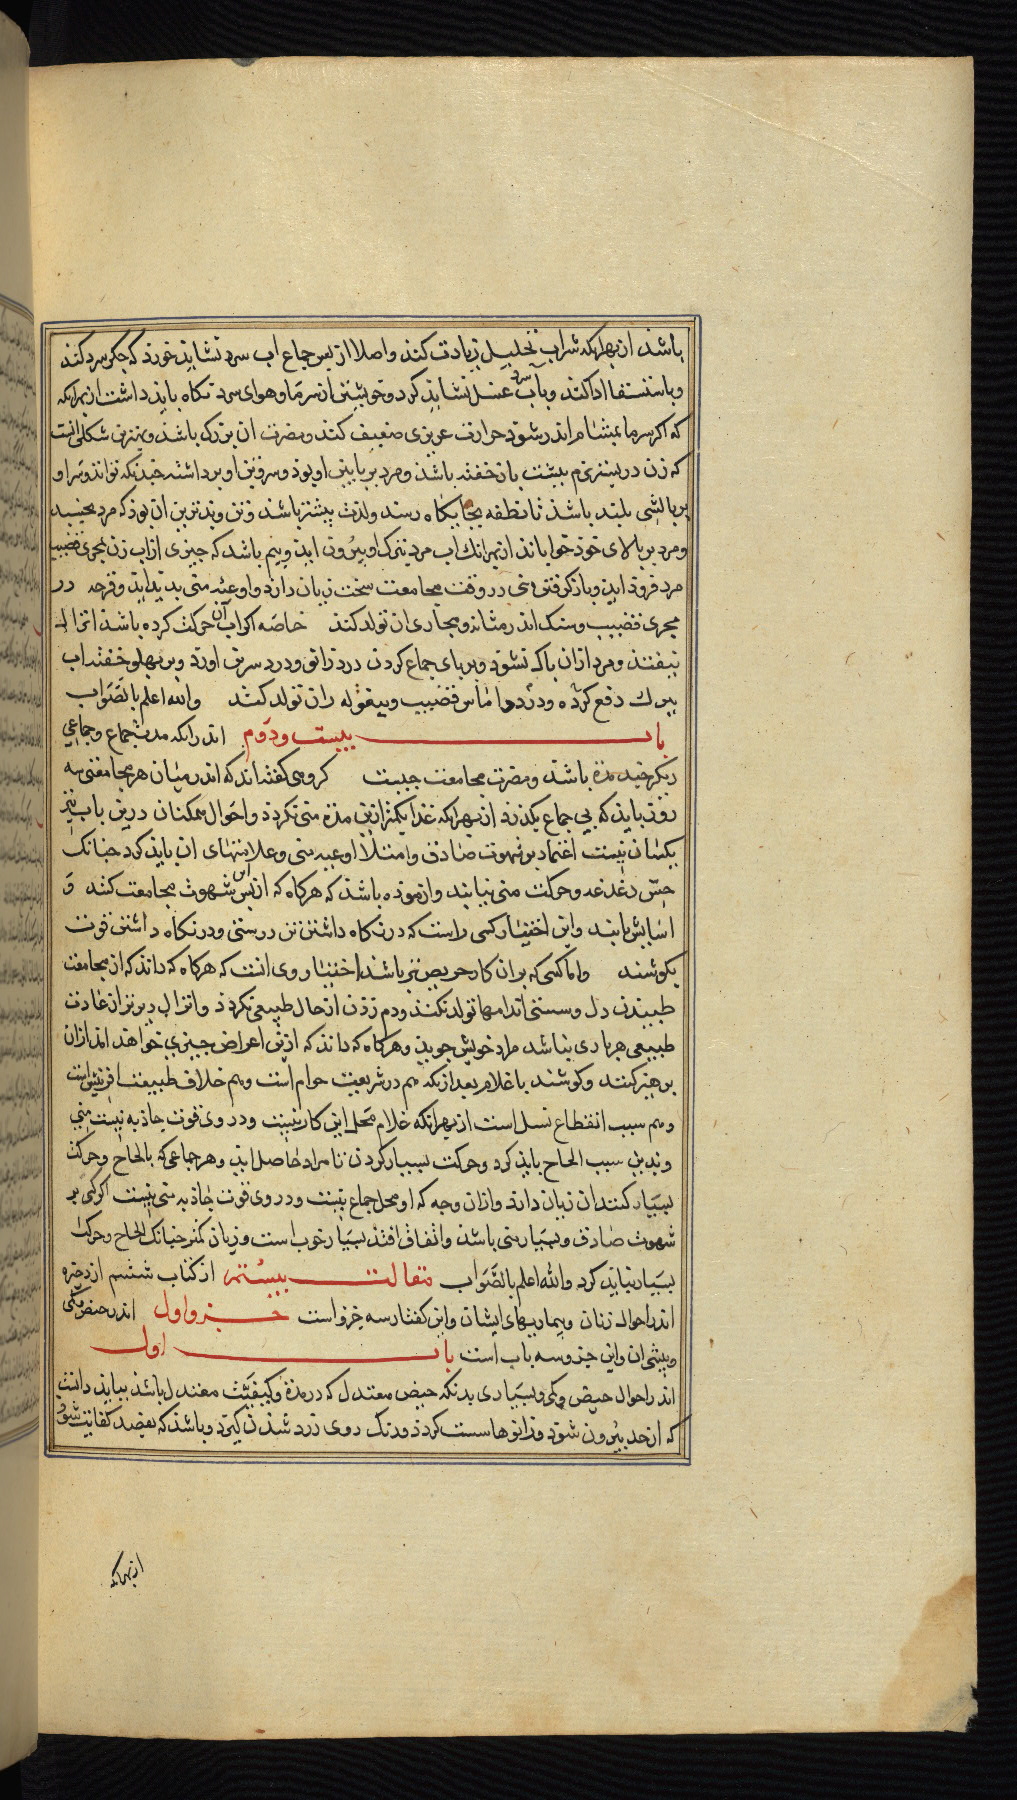 باشد از بهر انکه شراب تحلیل زیادت کند و اصلا از پس جماع اب سرد نشاید خورد که جکر سرد کند
و باستسقا ادا کند و باب سرد غسل نشاید کرد و خویشتن از سرما و هوای سرد نکاه باید داشت از بهر انکه
که اکر سرما بمشام اندر شود حرارت غریزی ضعیف کند و مضرت ان بزرک باشد و بهترین شکلی انست
که زن در بستر نرم بپشت باز خفته باشد و مرد بر بالین او بود و سرین او برداشته جندانکه تواند و سر او
بر بالشی بلند باشد تا نطفه بجایکاه رسد و لذت بیشتر باشد و بدترین ان بود که مرد بخسبد
و مرد بر بالای خود خواباند از بهر انک اب مرد بیرون اید و بیم باشد که جیزی از اب زن بمجری قضیب
مرد فرود اید و باز کرفتن منی در وقت مجامعت سخت زیان دارد و اوعیه منی بدید اید و قرحه در
مجری قضیب و سنک اندر مثانه و مجاری ان تولد کند خاصه اکر اب ان حرکت کرده باشد انزال
نیفتد و مرد ازان باک نشود و بر بای جماع کردن درد زانو و درد سرین اورد و بر پهلو خفته اب
بیرک دفع کرده و درد و اماس قضیب و بیغوله ران تولد کند والله اعلم بالصواب
باب بیست و دوم اندر انکه مدت جماع و جماعی
دیکر جند مدة باشد و مضرت مجامعت جیست کروهی کفته اند که اندر میان هر مجامعتی سه
روز باید که بی جماع بکذرد از بهر انکه غذا بکمتر ازین مدة منی نکردد و احوال همکنان درین باب نیز
یکسان نیست اعتماد بر شهوت صادق و امتلاء اوعیه منی و علامتهای ان باید کرد جنانک
حس دغدغه و حرکت منی بیابند و ازموده باشد که هرکاه که از پس ان شهوت مجامعت کنند و
اسایش یابند و این اختیار کسی راست که در نکاه داشتن تن درستی و در نکاه داشتن قوت
بکوشند و اما کسی که بران کار حریص تر باشد اختیار وی انست که هرکاه که داند که از مجامعت
طبیدن دل و سستی اندامها تولد نکند و دم زدن از حال طبیعی نکردد و انزال دیرتر از عادت
طبیعی هر باری نباشد مراد خویش جوید و هرکاه که داند که ازین اعراض جیزی خواهد امد ازان
برهیز کنند و کوشند با غلام بعد ازانکه هم در شریعت حرام است و هم خلاف طبیعت افرینش است
و هم سبب انقطاع نسل است از بهر انکه غلام محل این کار نیست و در وی قوت جاذبه نیست منی
و بدین سبب الحاح باید کرد و حرکت بسیار کردن تا مراد حاصل اید و هر جماعی که بالحاح و حرکت
بسیار کنند ان زیان دارد و ازان وجه که او محل جماع نیست و در وی قوت جاذبه منی نیست اکر کسی بر
شهوت صادق و بسیار منی باشد و اتفاق افتد بسیار خوب است و زیان کمتر جنانک الحاح و حرکت
بسیار نباید کرد والله اعلم بالصواب مقالت بیستم از کتاب ششم از ذخیره
اندر احوال زنان و بیماریهای ایشان و این کفتار سه جزو است جزو اول اندر حیض و کمی
و بیشی ان و این جزو سه باب است باب اول
اندر احوال حیض و کمی و بسیاری بدانکه حیض معتدل که در مدة و کیفیت معتدل باشد بباید دانست
که از حد بیرون شود و زانوها سست کردد و رنک روی زرد شدن کیرد و باشد که بفصد کفایت شود
از بهر انکه